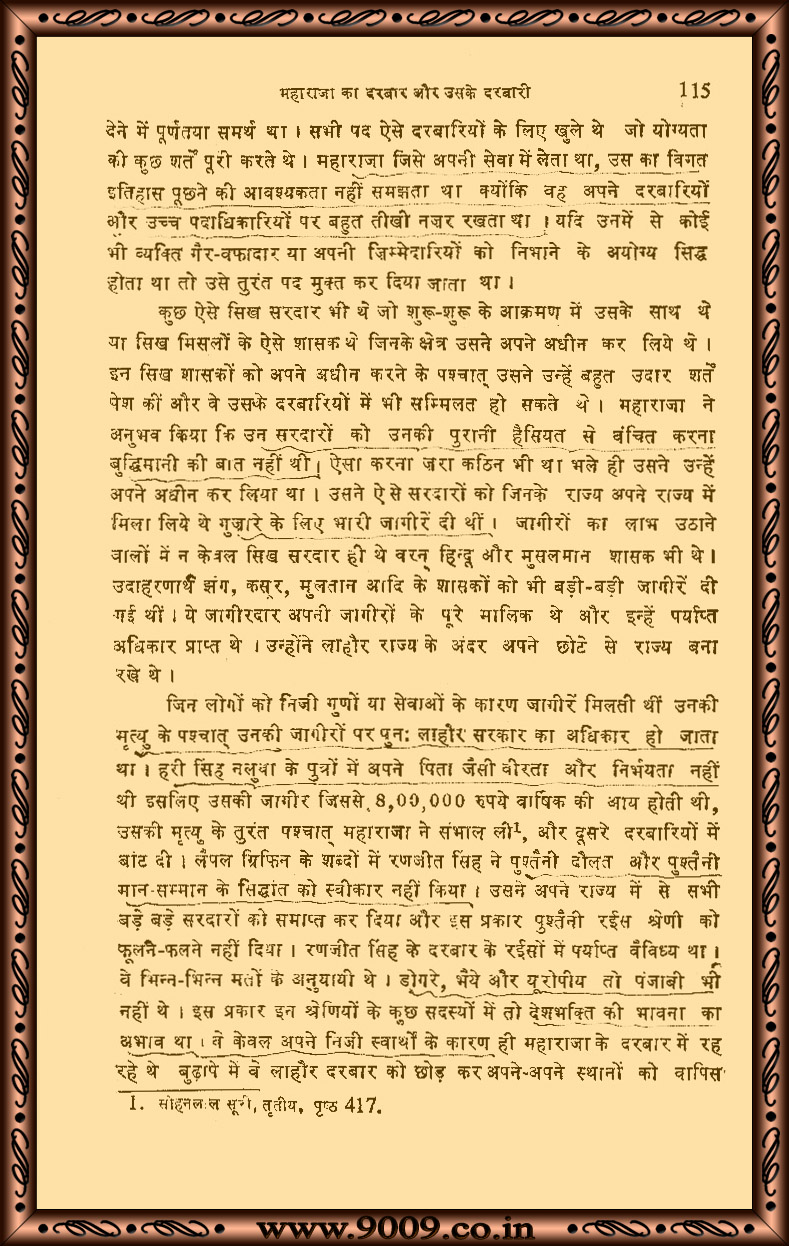 महाराजा का दरबार और उसके दरबारी 115
देने में पूर्णतया समर्थ था । सभी पद ऐसे दरबारियों के लिए खुले थे जो योग्यता
की कुछ शर्तें पूरी करते थे । महाराजा जिसे अपनी सेवा में लेता था, उस का विगत
इतिहास पूछने की आवश्यकता नहीं समझता था क्योंकि वह अपने दरबारियों
और उच्च पदाधिकारियों पर बहुत तीखी नज़र रखता था । यदि उनमें से कोई
भी व्यक्ति गैर-वफादार या अपनी ज़िम्मेदारियों को निभाने के अयोग्य सिद्ध
होता था तो उसे तुरंत पद मुक्त कर दिया जाता था ।
कुछ ऐसे सिख सरदार भी थे जो शुरू-शुरू के आक्रमण में उसके साथ थे
या सिख मिसलों के ऐसे शासक थे जिनके क्षेत्र उसने अपने अधीन कर लिये थे ।
इन सिख शासकों को अपने अधीन करने के पश्चात् उसने उन्हें बहुत उदार शर्तें
पेश कीं और वे उसके दरबारियों में भी सम्मिलत हो सकते थे । महाराजा ने
अनुभव किया कि उन सरदारों को उनकी पुरानी हैसियत से वंचित करना
बुद्धिमानी की बात नहीं थी। ऐसा करना ज़रा कठिन भी था भले ही उसने उन्हें
अपने अधीन कर लिया था । उसने ऐसे सरदारों को जिनके राज्य अपने राज्य में
मिला लिये थे गुज़ारे के लिए भारी जागीरें दी थीं । जागीरों का लाभ उठाने
वालों में न केवल सिख सरदार ही थे वरन् हिन्दू और मुसलमान शासक भी थे ।
उदाहरणार्थ झंग, कसूर, मुलतान आदि के शासकों को भी बड़ी-बड़ी जागीरें दी
गई थीं । ये जागीरदार अपनी जागीरों के पूरे मालिक थे और इन्हें पर्याप्त
अधिकार प्राप्त थे । उन्होंने लाहौर राज्य के अंदर अपने छोटे से राज्य बना
रखे थे ।
जिन लोगों को निजी गुणों या सेवाओं के कारण जागीरें मिलती थीं उनकी
मृत्यु के पश्चात् उनकी जागीरों पर पुन: लाहौर सरकार का अधिकार हो जाता
था । हरी सिंह नलुवा के पुत्रों में अपने पिता जैसी वीरता और निर्भयता नहीं
थी इसलिए उसकी जागीर जिससे 8,00,000 रुपये वार्षिक की आय होती थी,
उसकी मृत्यु के तुरंत पश्चात् महाराजा ने संभाल ली¹, और दूसरे दरबारियों में
बांट दी । लैपल ग्रिफिन के शब्दों में रणजीत सिंह ने पुश्तैनी दौलत और पुश्तैनी
मान-सम्मान के सिद्धांत को स्वीकार नहीं किया । उसने अपने राज्य में से सभी
बड़े बड़े सरदारों को समाप्त कर दिया और इस प्रकार पुश्तैनी रईस श्रेणी को
फूलने-फलने नहीं दिया । रणजीत सिंह के दरबार के रईसों में पर्याप्त वैविध्य था ।
वे भिन्न-भिन्न मतों के अनुयायी थे । डोगरे, भैये और यूरोपीय तो पंजाबी भी
नहीं थे । इस प्रकार इन श्रेणियों के कुछ सदस्यों में तो देशभक्ति की भावना का
अभाव था । वे केवल अपने निजी स्वार्थों के कारण ही महाराजा के दरबार में रह
रहे थे बुढ़ापे में वे लाहौर दरबार को छोड़ कर अपने-अपने स्थानों को वापिस
1. सोहनलाल सूरी, तृतीय, पृष्ठ 417.
www.9009.co.in